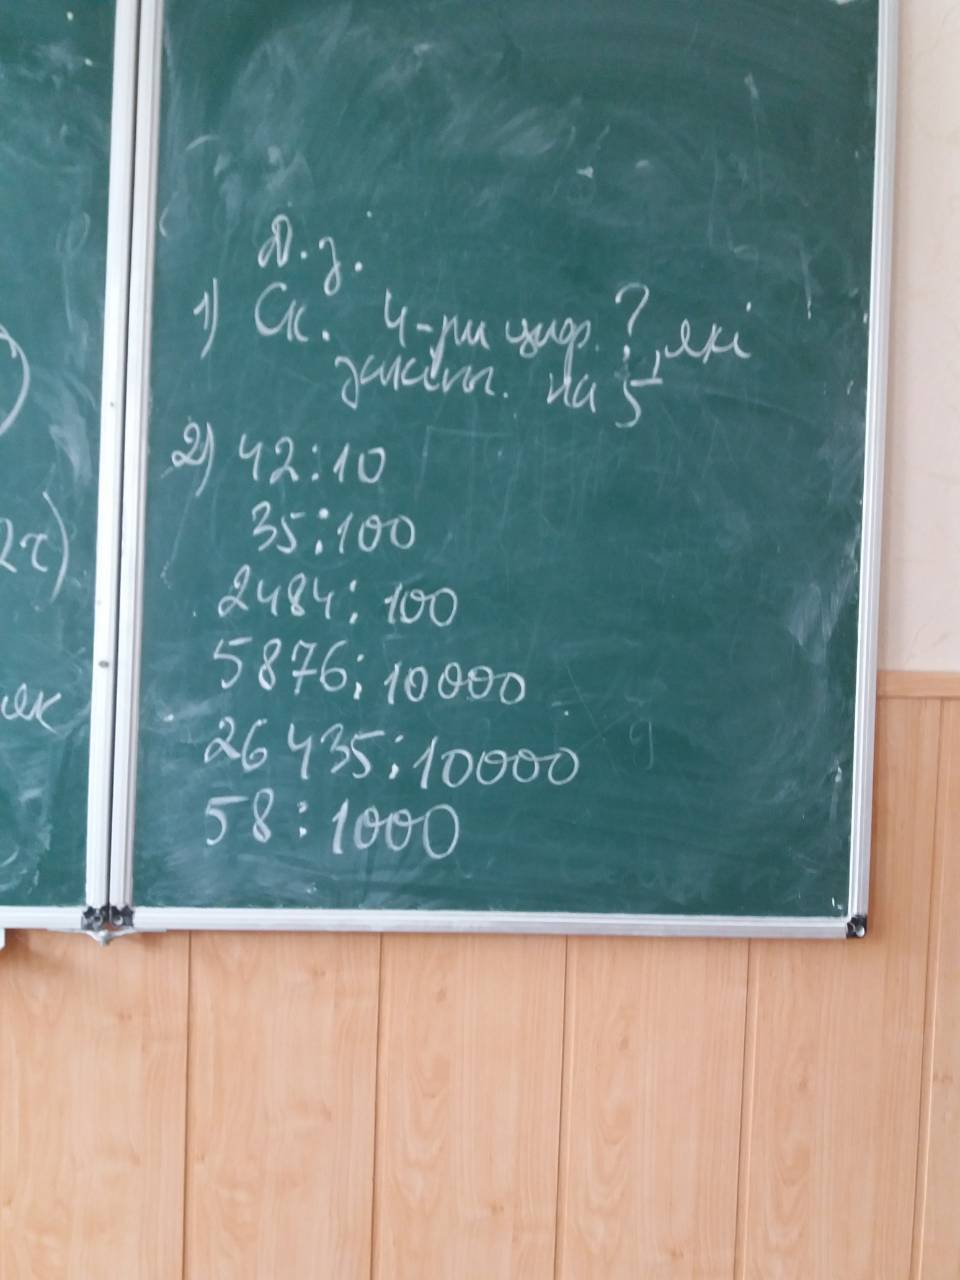 2τ)
як
Д. з.
1) Ск. 4-ри циф. ?, які
закінч. на 5
2) 42:10
35:100
2484:100
5876:10000
26435:10000
58:1000